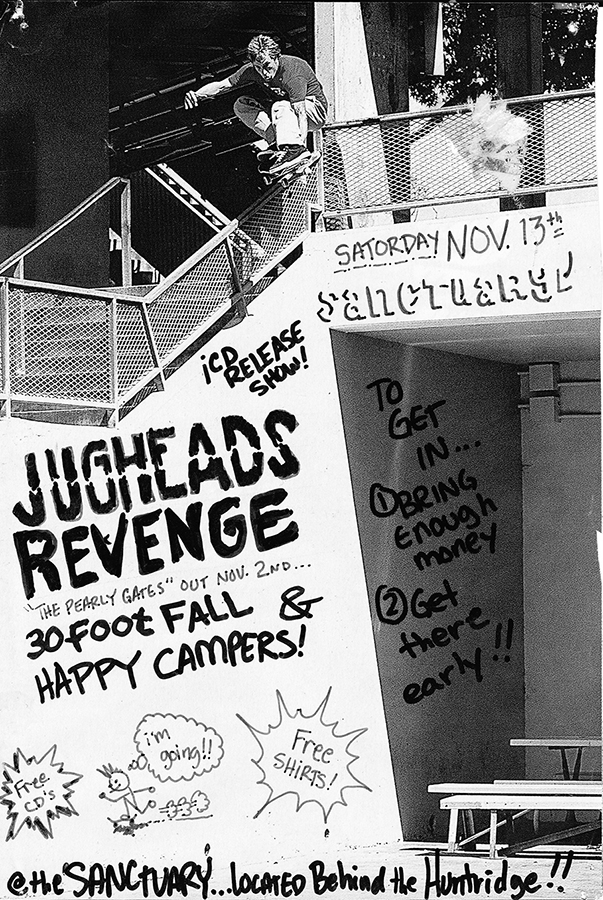 SATORDAY NOV. 13th
SANCTUARY!
¡CD
RELEASE
SHOW!
JUGHEADS
REVENGE
"THE PEARLY GATES" OUT NOV. 2ND...
30 FOOT FALL &
HAPPY CAMPERS!
TO
GET
IN...
① BRING
Enough
money
② Get
there
early!!
Free
CD's
i'm
going!!
Free
SHIRTS!
@ the SANCTUARY... LOCATED Behind the Huntridge!!